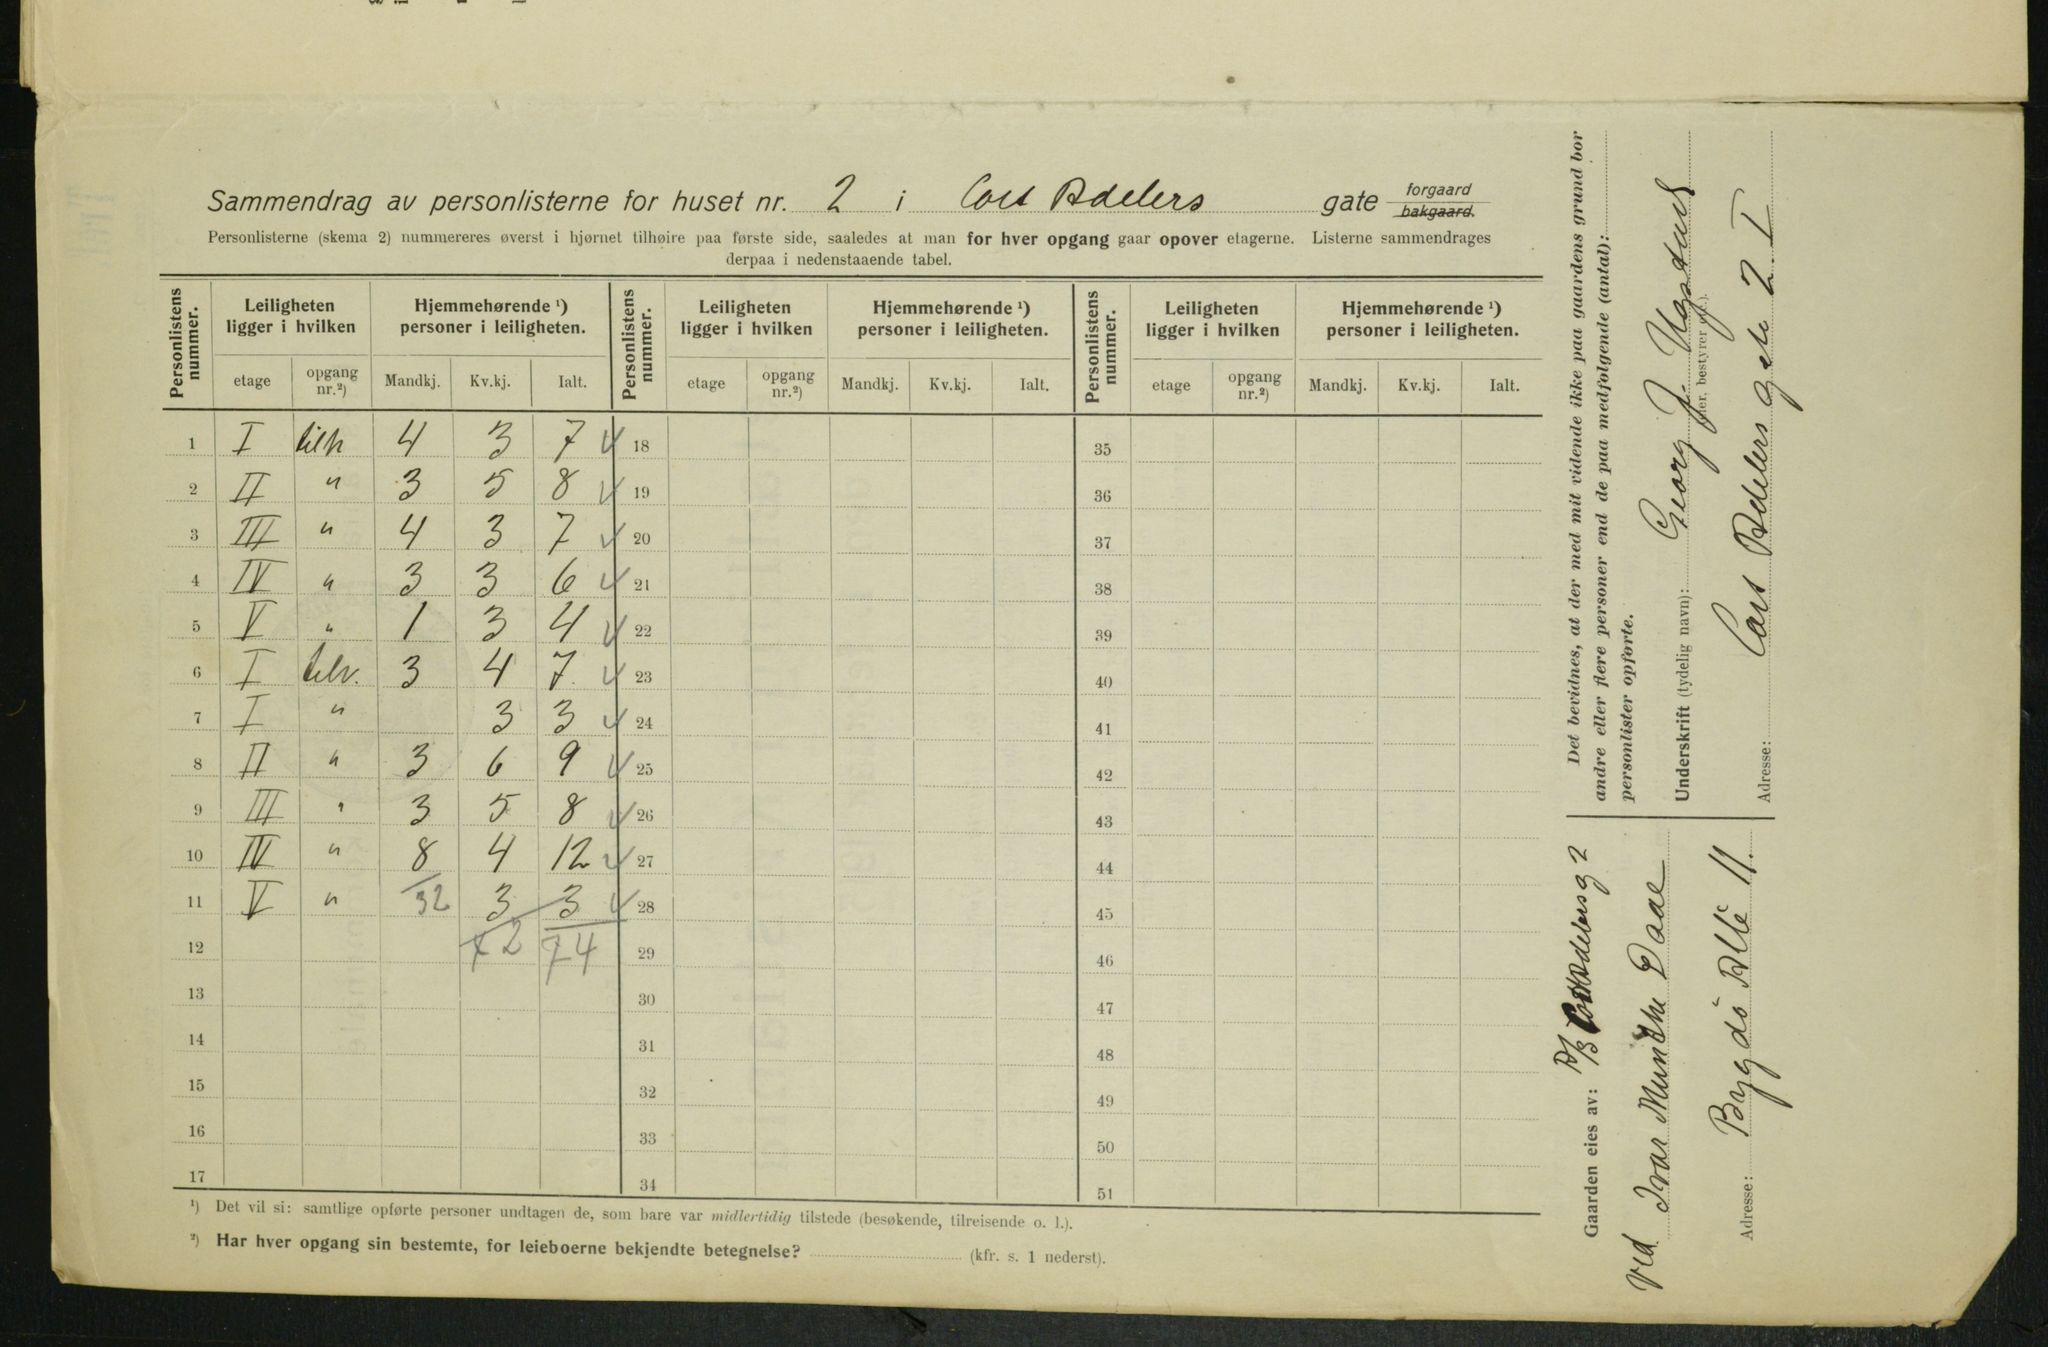 Sammendrag av personlisterne for huset nr. 2 i Cort Adelers gate forgaard bakgaard.
Personlisterne (skema 2) nummereres øverst i hjørnet tilhøire paa første side, saaledes at man for hver opgang gaar opover etagerne. Listerne sammendrages
derpaa i nedenstaaende tabel.
Personlistens nummer. Leiligheten ligger i hvilken Hjemmehørende ¹) personer i leiligheten. Personlistens nummer. Leiligheten ligger i hvilken Hjemmehørende ¹) personer i leiligheten. Personlistens nummer. Leiligheten ligger i hvilken Hjemmehørende ¹) personer i leiligheten.
etage opgang nr.²) Mandkj. Kv.kj. Ialt. etage opgang nr.²) Mandkj. Kv.kj. Ialt. etage opgang nr.²) Mandkj. Kv.kj. Ialt.
1 I tilh 4 3 7 18 35
2 II " 3 5 8 19 36
3 III " 4 3 7 20 37
4 IV " 3 3 6 21 38
5 V " 1 3 4 22 39
6 I tilv. 3 4 7 23 40
7 I " 3 3 24 41
8 II " 3 6 9 25 42
9 III " 3 5 8 26 43
10 IV " 8 4 12 27 44
11 V " 32 3 3 28 45
12 42 74 29 46
13 30 47
14 31 48
15 32 49
16 33 50
17 34 51
¹) Det vil si: samtlige opførte personer undtagen de, som bare var midlertidig tilstede (besøkende, tilreisende o. l.).
²) Har hver opgang sin bestemte, for leieboerne bekjendte betegnelse? (kfr. s. 1 nederst).
Det bevidnes, at der med mit vidende ikke paa gaardens grund bor
andre eller flere personer end de paa medfølgende (antal):
personlister opførte.
Underskrift (tydelig navn): Georg J.
(eier, bestyrer o.l.).
Adresse: Cort Adelers gate 2 I
Gaarden eies av: A/S Cort Adelersg 2
ved Ivar Munthe Daae
Adresse: Bygdö Allé 11.